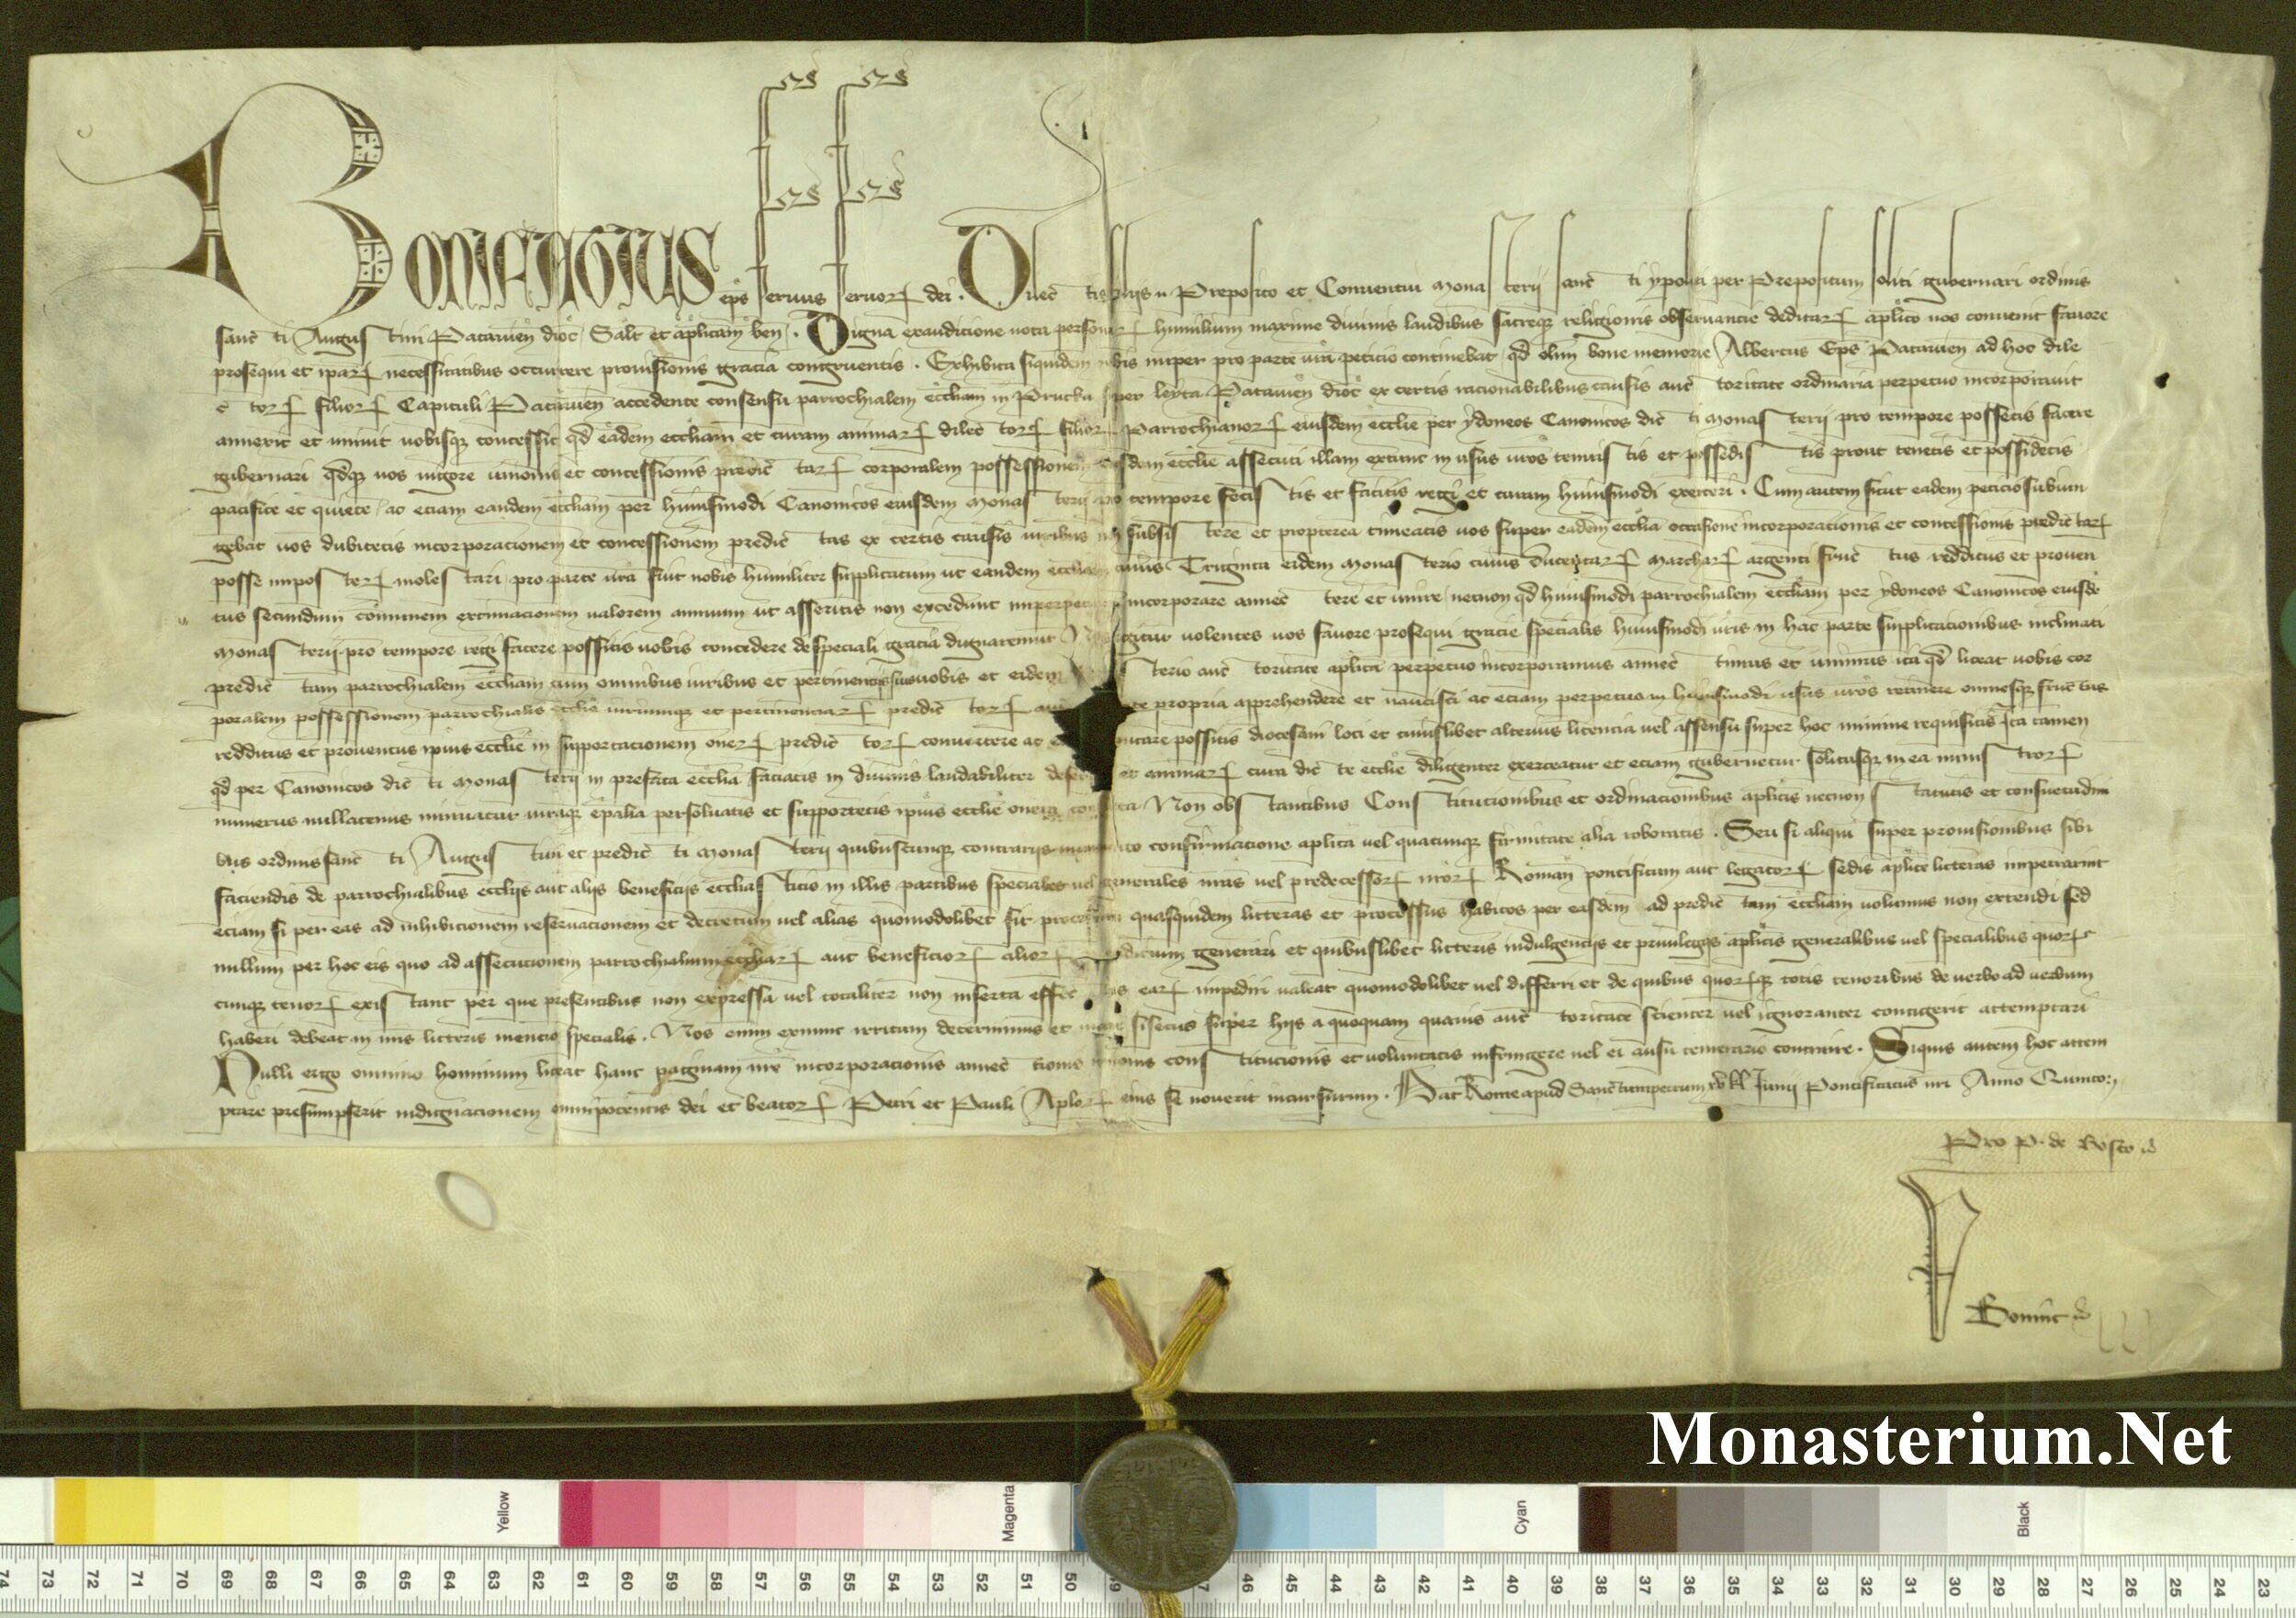 Bonifacius ep̄s seruus seruoꝝ dei . Dilectis filijs .. Preposito et Conuentui Monasterii sancti ypoliti per Prepositum soliti gubernari ordinis
sancti Augustini Patauien̄ dioc̄ Salt̄ et ap̄licam ben̄ . Digna exauditione uota personaꝝ humilium maxime diuinis laudibus sacreqꝫ religionis obseruancie deditaꝝ ap̄lico nos conuenit fauore
prosequi et ipaꝝ necessitatibus occurrere prouisionis gracia congruentis . Exhibita siquidem nobis nuper pro parte ur̄a peticio continebat qd̄ olim bone memorie Albertus Ep̄s Patauien̄ ad hoc dile
ctoꝝ filioꝝ Capituli Patauien̄ accedente consensu parrochialem ecc̄liam in Prucka super leyta Patauien̄ dioc̄ ex certis racionabilibus causis auctoritate ordinaria perpetuo incorporauit
annexit et uniuit uobisqꝫ concessit qd̄ eadem ecc̄liam et curam animaꝝ dilectoꝝ filioꝝ Parrochianoꝝ eiusdem ecc̄lie per ydoneos Canonicos dicti Monasterii pro tempore possetis facere
gubernari qd̄qꝫ uos uigore unionis et concessionis predictaꝝ corporalem possessionem eiusdem ecc̄lie assecuti illam extunc in usus ur̄os tenuistis et possedistis prout tenetis et possidetis
pacifice et quiete ac eciam eandem ecc̄liam per huiusmodi Canonicos eiusdem Monasterii pro tempore fecistis et facitis regi et curam huiusmodi exerceri . Cum autem sicut eadem peticio subiun
gebat uos dubitetis incorporacionem et concessionem predictas ex certis causis uiribus non subsistere et propterea timeatis uos super eadem ecc̄lia occasione incorporacionis et concessionis predictaꝝ
posse imposteꝝ molestari pro parte ur̄a fuit nobis humiliter supplicatum ut eandem ecc̄liam cuius Triginta eidem Monasterio cuius Ducentaꝝ Marchaꝝ argenti fructus redditus et prouen
tus secundum comunem extimacionem ualorem annuum ut asseritis non excedunt imperpetuum incorporare annectere et unire necnon qd̄ huiusmodi parrochialem ecc̄liam per ydoneos Canonicos eiusdē
Monasterii pro tempore regi facere possitis uobis concedere de speciali gracia dignaremur Nos igitur uolentes uos fauore prosequi gracie specialis huiusmodi ur̄is in hac parte supplicacionibus inclinati
predictam parrochialem ecc̄liam cum omnibus iuribus et pertinentijs suis uobis et eidem Monasterio auctoritate ap̄lica perpetuo incorporamus annectimus et unimus ita qd̄ liceat uobis cor
poralem possessionem parrochialis ecc̄lie iuriumqꝫ et pertinenciaꝝ predictoꝝ auctoritate propria apprehendere et nancisci ac eciam perpetuo in huiusmodi usus ur̄os retinere omnesqꝫ fructus
redditus et prouentus ipius ecc̄lie in supportacionem oneꝝ predictoꝝ conuertere ac possitis diocesani loci et cuiuslibet alterius licencia uel assensu super hoc minime requisitis Ita tamen
qd̄ per Canonicos dicti Monasterii in prefata ecc̄lia faciatis in diuinis laudabiliter deseruiri et animaꝝ cura dicte ecc̄lie diligenter exerceatur et eciam gubernetur solitusqꝫ in ea ministroꝝ
numerus nullatenus minuatur iuraqꝫ ep̄alia persoluatis et supportetis ipius ecc̄lie onera consueta Non obstantibus Constitucionibus et ordinacionibus ap̄licis necnon statutis et consuetudini
bus ordinis sancti Augustini et predicti Monasterii quibuscunqꝫ contrarijs iuramento confirmacione ap̄lica uel quacunqꝫ firmitate alia roboratis . Seu si aliqui super prouisionibus sibi
faciendis de parrochialibus ecc̄lijs aut alijs beneficijs ecc̄liasticis in illis partibus speciales uel generales nr̄as uel predecessoꝝ nr̄oꝝ Roman̄ pontificum aut legatoꝝ sedis ap̄lice litteras impetrarint
eciam si per eas ad inhibicionem reseruacionem et decretum uel alias quomodolibet sit processum quasquidem litteras et processus habitos per easdem ad predictam ecc̄liam uolumus non extendi sed
nullum per hoc eis quo ad assecucionem parrochialium ecc̄liaꝝ aut beneficioꝝ alioꝝ preiudicium generari et quibuslibet litteris indulgencijs et priuilegijs ap̄licis generalibus uel specialibus quoꝝ
cunqꝫ tenoꝝ existant per que presentibus non expressa uel totaliter non inserta effectus eaꝝ impediri ualeat quomodolibet uel differri et de quibus quoꝝqꝫ totis tenoribus de uerbo ad uerbum
haberi debeat in nr̄is litteris mencio specialis . Nos enim exnunc irritum decernimus et inane si secus super hijs a quoquam quauis auctoritate scienter uel ignoranter contigerit attemptari
Nulli ergo omnino hominum liceat hanc paginam nr̄e incorporacionis annectionis unionis constitucionis et uoluntatis infringere uel ei ausu temerario contraire . Siquis autem hoc attem
ptare presumpserit indignacionem omnipotentis dei et beatoꝝ Petri et Pauli Ap̄loꝝ eius se nouerit incursurum . Dat̄ Rome apud Sanctumpetrum xv kl̄ Junii Pontificatus nr̄i Anno Quinto
Pro P. de Bosco
Monasterium.Net
Yellow
Magenta
Cyan
Black
74 73 72 71 70 69 68 67 66 65 64 63 62 61 60 59 58 57 56 55 54 53 52 51 50 49 47 46 45 44 43 42 41 40 39 38 37 36 35 34 33 32 31 30 29 28 27 26 25 24 23